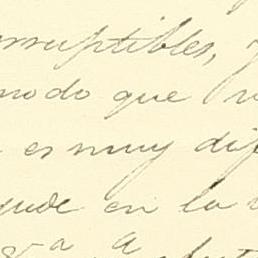 rruptibles,
modo que
es muy dif
ude en la